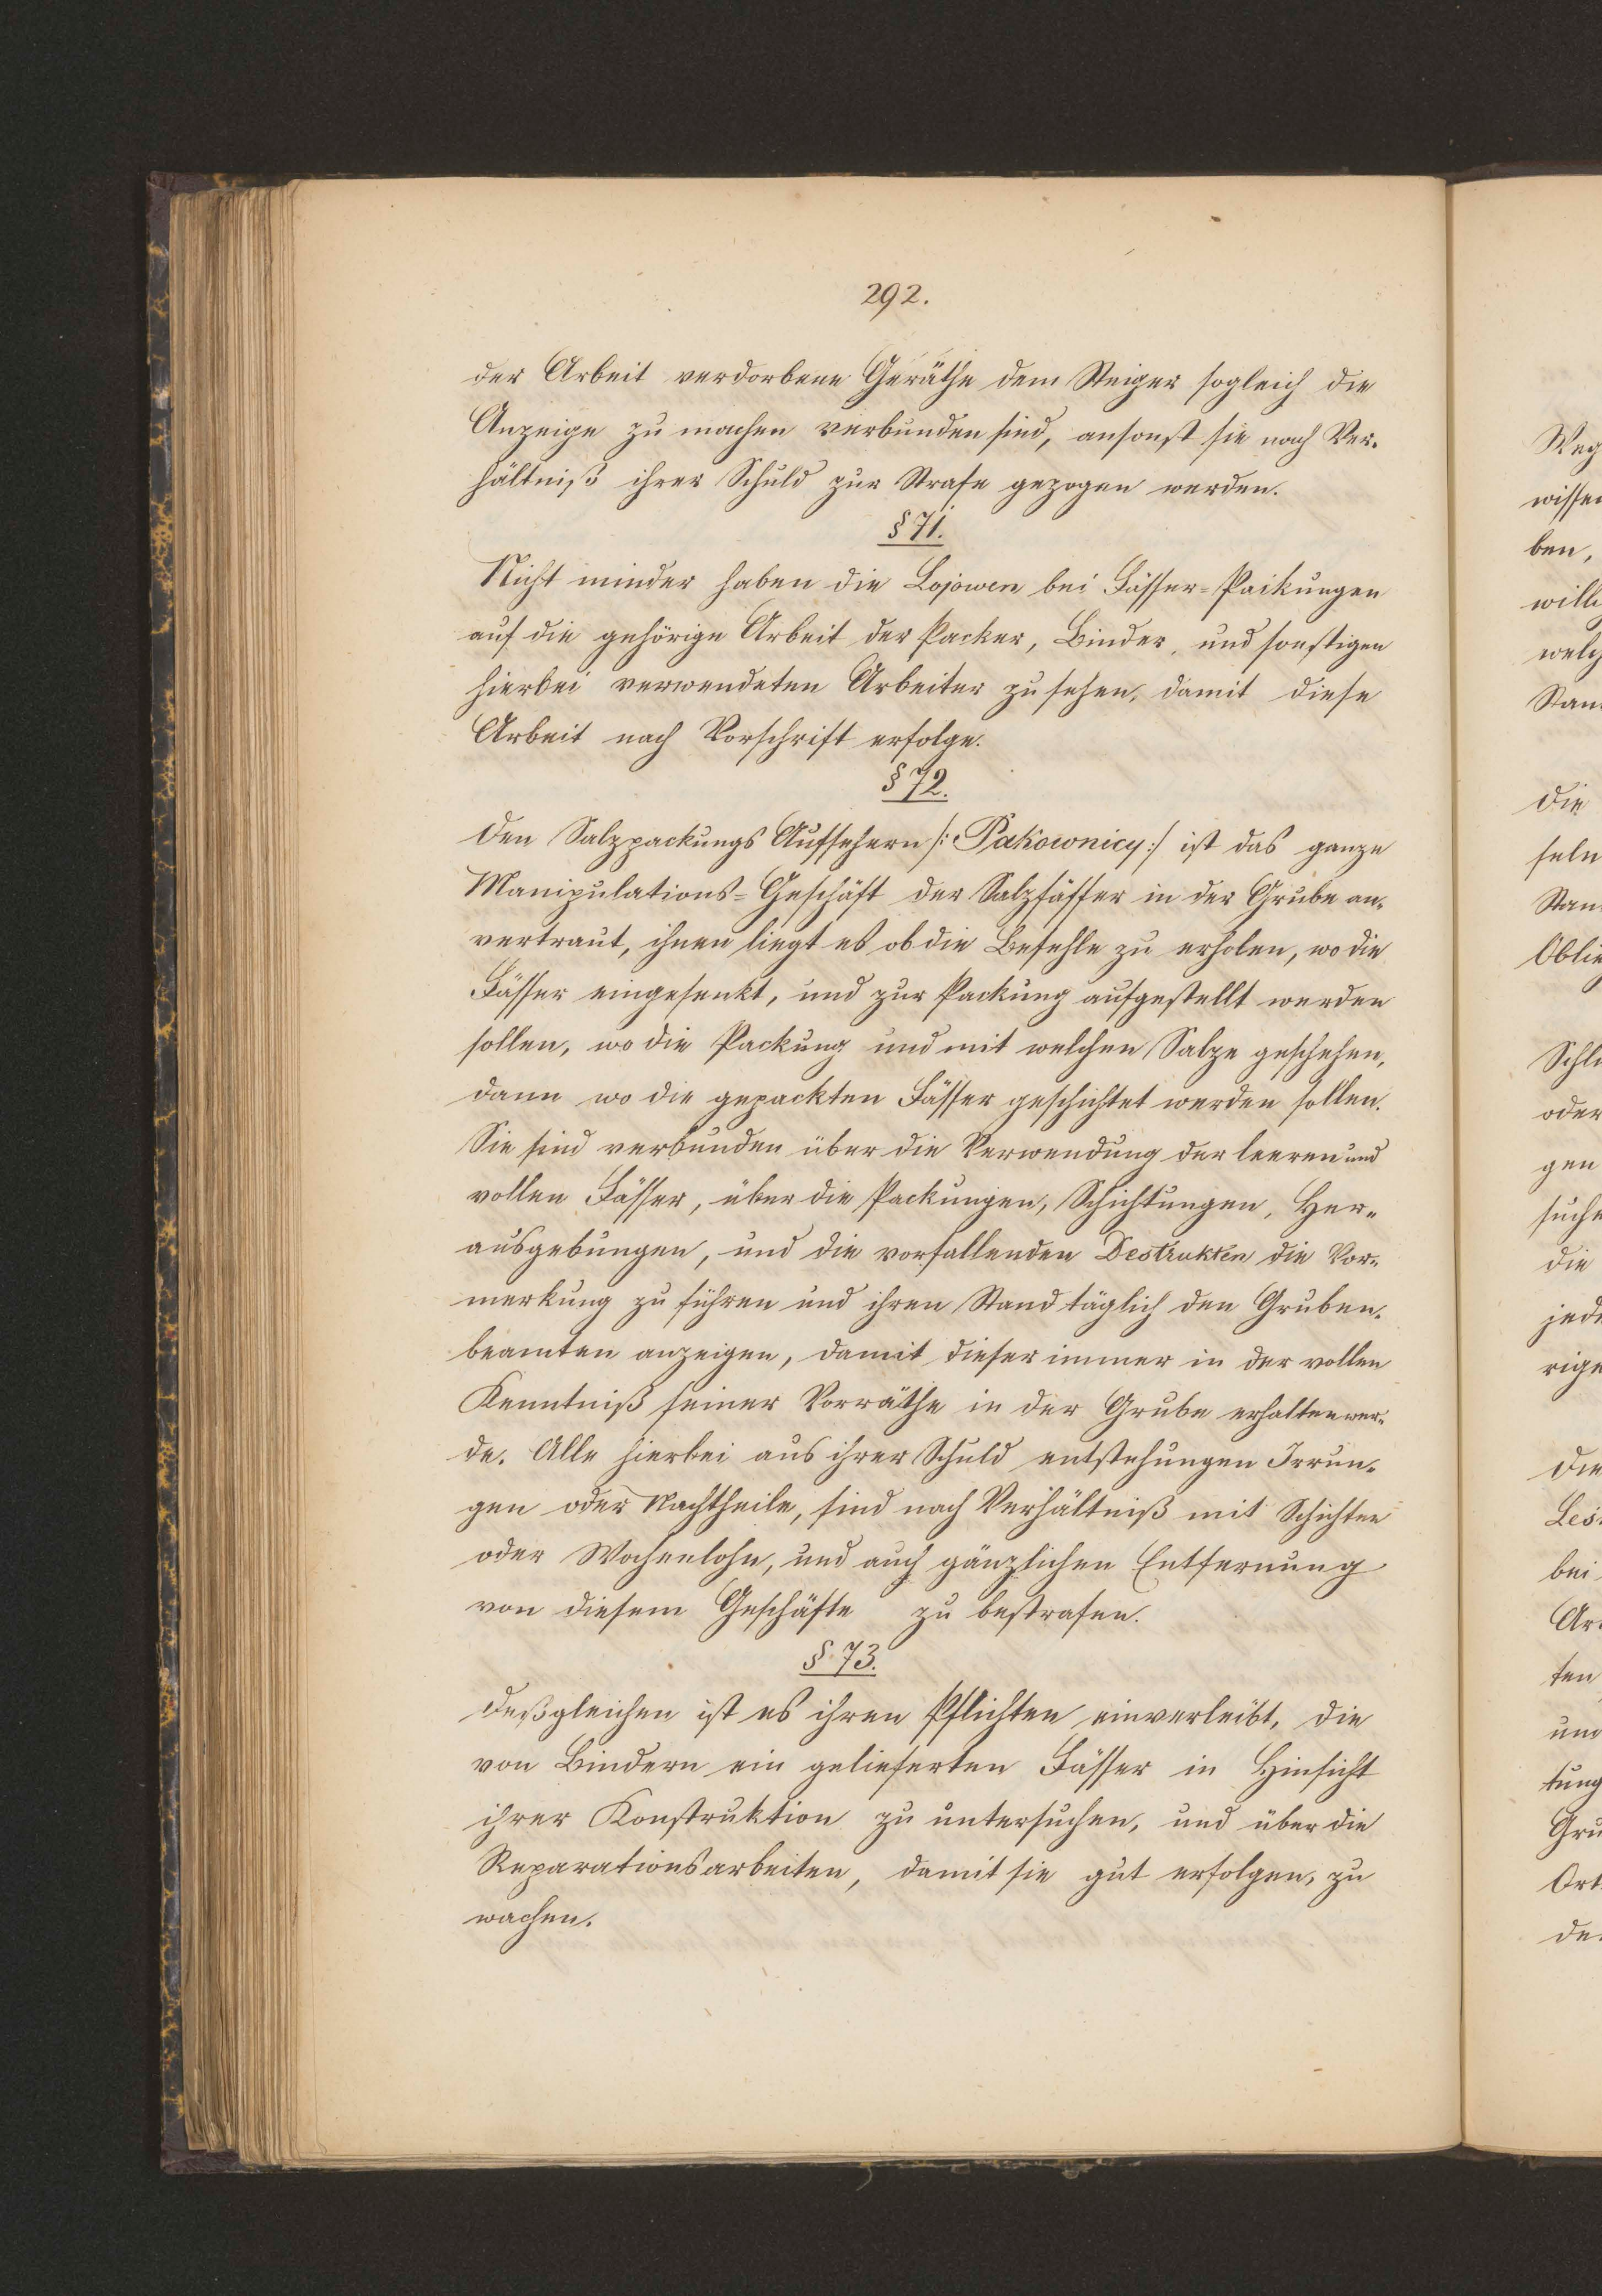 292.
der Arbeit verdorbene Geräthe dem Steiger sogleich die
Anzeige zu machen verbunden sind, ansonst sie nach Ver-
hältniß ihrer Schuld zur Strafe gezogen werden.
§ 71.
Nicht minder haben die Lojowen bei Fässer-Paikungen
auf die gehörige Arbeit der Packer, Binder, und sonstigen
hierbei verwendeten Arbeiter zu sehen, damit diese
Arbeit nach Vorschrift erfolge.
§ 72.
Den Salzpackungs Aufsehern /: Pakownicy :/ ist das ganze
Manipulations-Geschäft der Salzfässer in der Grube an-
vertraut, ihnen liegt es ob die Befehle zu erholen, wo die
Fässer eingesenkt, und zur Packung aufgestellt werden
sollen, wo die Packung und mit welchen Salze geschehen,
dann wo die gepackten Fässer geschichtet werden sollen.
Sie sind verbunden über die Verwendung der leeren und
vollen Fässer, über die Packungen, Schichtungen, Her-
ausgebungen, und die vorfallenden Destrukten die Vor-
merkung zu führen und ihren Stand täglich den Gruben-
beamten anzeigen, damit dieser immer in der vollen
Kenntniß seiner Vorräthe in der Grube erhalten wer-
de. Alle hierbei aus ihrer Schuld entstehungen Irrun-
gen oder Nachtheile, sind nach Verhältniß mit Schichten
oder Wochenlohn, und auch gänzlichen Entfernung
von diesem Geschäfte zu bestrafen.
§. 73.
Deßgleichen ist es ihren Pflichten einverleibt, die
von Bindern ein gelieferten Fässer in Hinsicht
ihrer Konstruktion zu untersuchen, und über die
Reparationsarbeiten, damit sie gut erfolgen, zu
wachen.
Weg
wissen
ben,
will
welch
Stan
Die
seln
Stan
Oblie
Schl
oder
gen
suche
die
jede
rige
Die
Les
bei
Ar
ten
und
tung
Gru
Ort
de